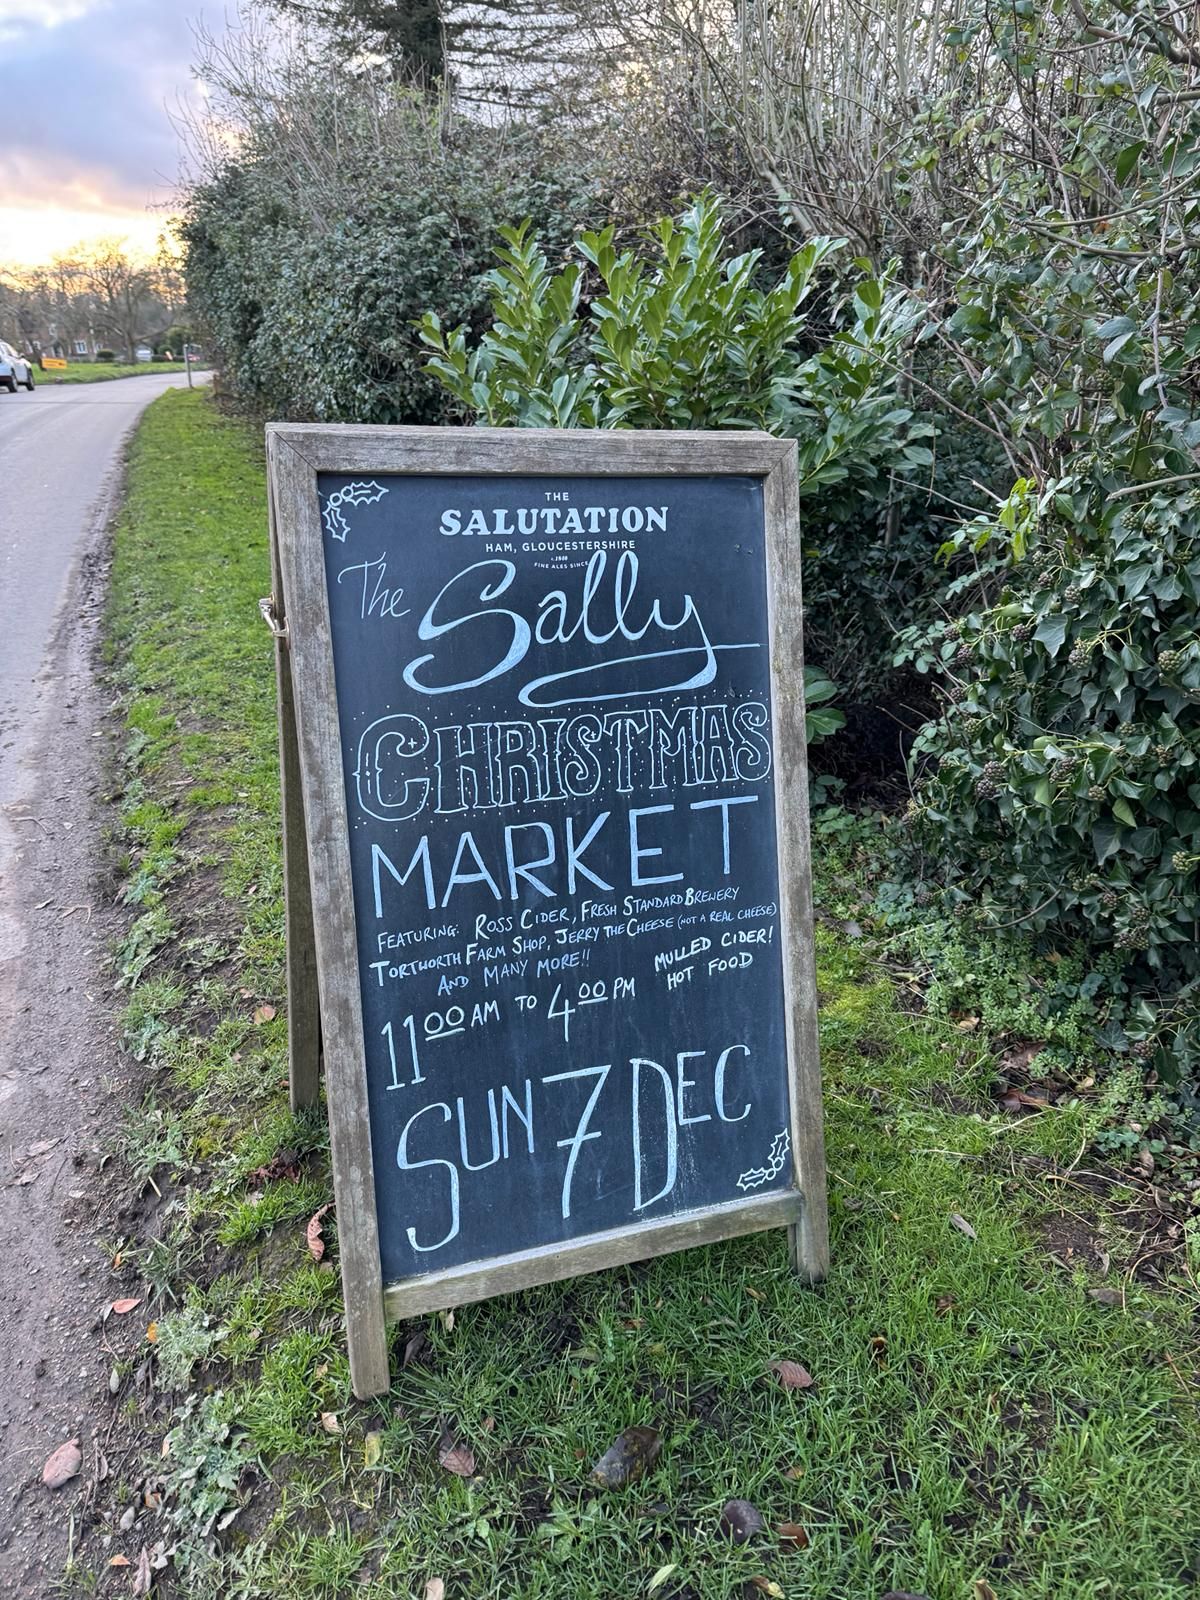 THE
SALUTATION
HAM, GLOUCESTERSHIRE
FINE ALES SINCE
The Sally
CHRISTMAS
MARKET
FEATURING: ROSS CIDER, FRESH STANDARD BREWERY
TORTWORTH FARM SHOP, JERRY THE CHEESE (NOT A REAL CHEESE)
AND MANY MORE!!
MULLED CIDER!
HOT FOOD
11 00 AM TO 4 00 PM
SUN 7 DEC